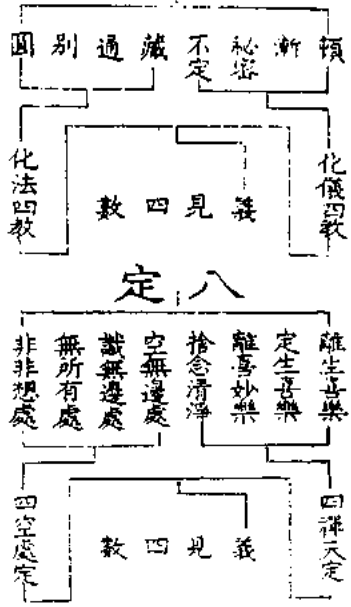 頓
漸
秘密
不定
藏
通
別
圓
化儀四教
化法四教
義見四數
八定
離生喜樂
定生喜樂
離喜妙樂
捨念清淨
空無邊處
識無邊處
無所有處
非非想處
四禪天定
四空處定
義見四數